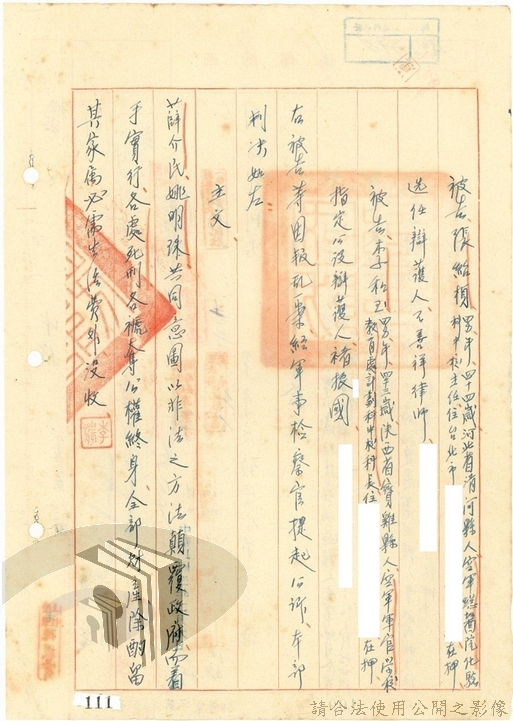 被告張紹楨男年四十四歲河北省清河縣人空軍總醫院化驗
科中校主任住台北市　　　在押
選任辯護人王善祥律師
被告李和玉男年四十三歲陝西省寶雞縣人空軍軍官學校
教育處計劃科中校科長住　　　在押
指定公設辯護人褚振國
右被告等因叛亂案經軍事檢察官提起公訴本部
判決如左
主文
薛介民姚明珠共同意圖以非法之方法顛覆政府而著
手實行各處死刑各褫奪公權終身全部財產除酌留
其家屬必需生活費外沒收
111
請合法使用公開之影像